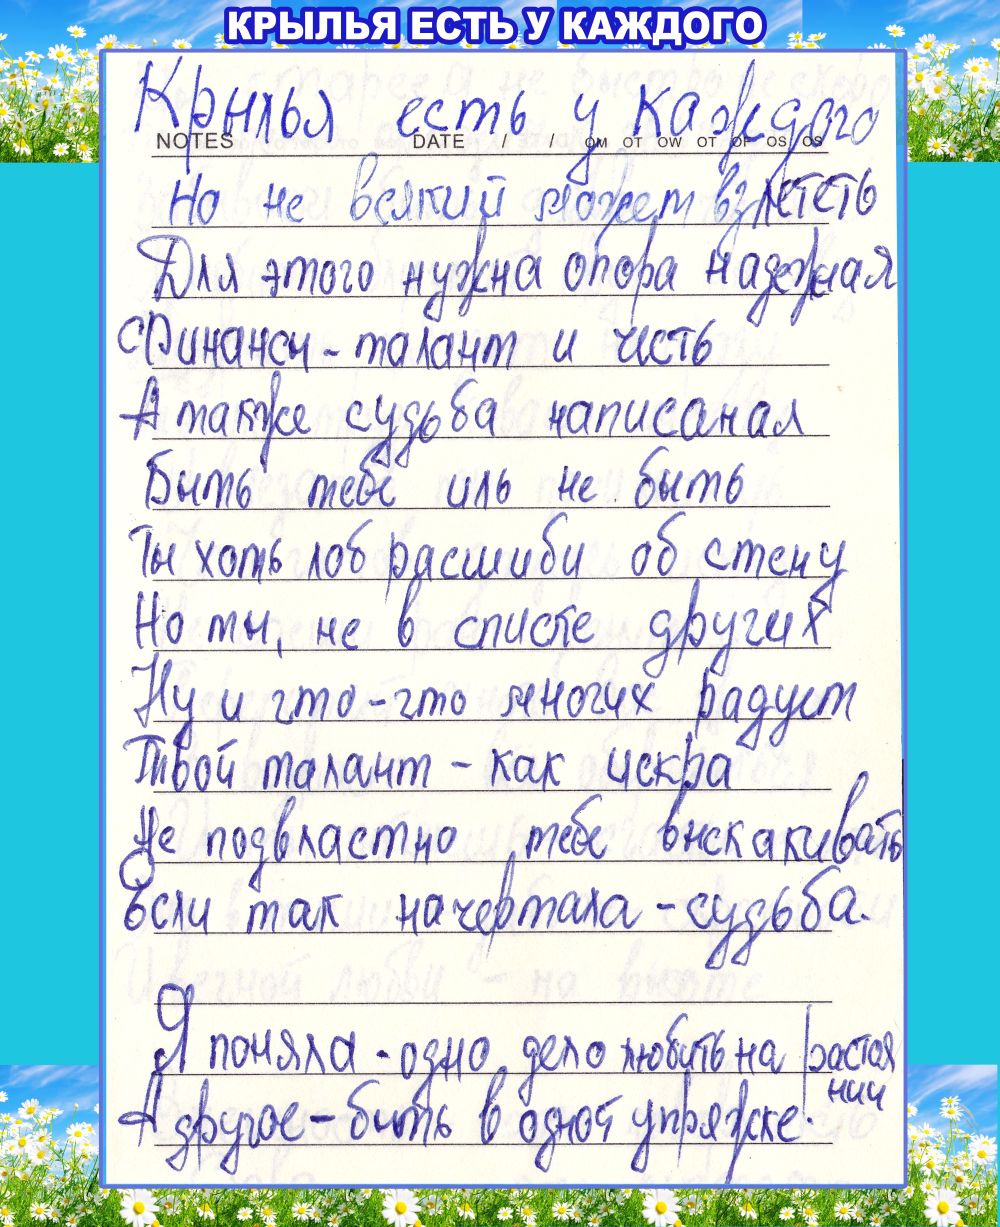 КРЫЛЬЯ ЕСТЬ У КАЖДОГО
Крылья есть у каждого
NOTES DATE / / OM OT OW OT OF OS OS
Но не всякий может взлететь
Для этого нужна опора надежная
Финансы - талант и честь
А также судьба написаная
Быть тебе иль не быть
Ты хоть лоб расшиби об стену
Но ты, не в списке других
Ну и что-что многих радует
Твой талант - как искра
Не подвластно тебе выскакивать
Если так начертала - судьба.
Я поняла - одно дело любить на растоя
нии
А другое - быть в одной упряжке.